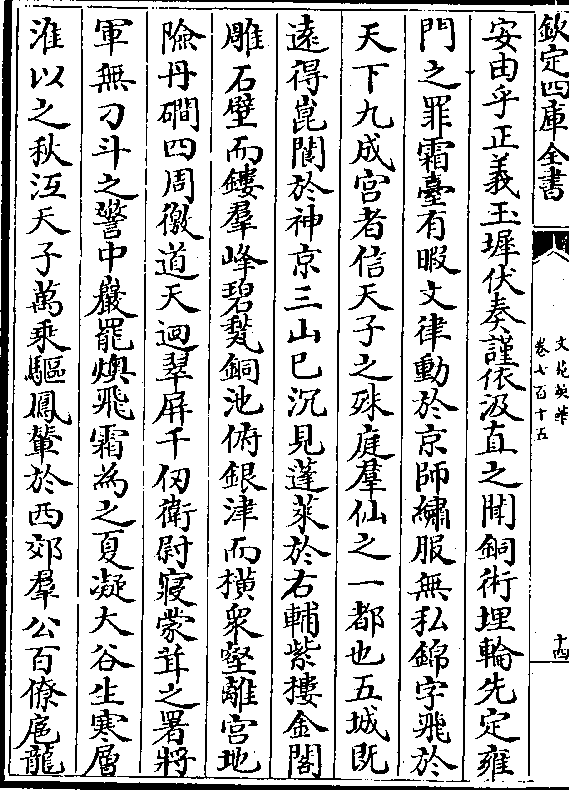 欽定四庫全書
文苑英華
卷七百十五
十四
安由乎正義玉墀伏奏謹依汲直之聞銅術埋輪先定雍
門之罪霜臺有暇文律動於京師繡服無私錦字飛於
天下九成宫者信天子之殊庭羣仙之一都也五城既
逺得崑閬於神京三山已沉見蓬萊於右輔紫樓金閣
雕石壁而鏤羣峰碧甃銅池俯銀津而横衆壑離宫地
險丹磵四周徼道天迴翠屏千仞衛尉寢蒙茸之署將
軍無刁斗之警中巖罷燠飛霜為之夏凝大谷生寒層
淮以之秋沍天子萬乘驅鳳輦於西郊羣公百僚扈龍